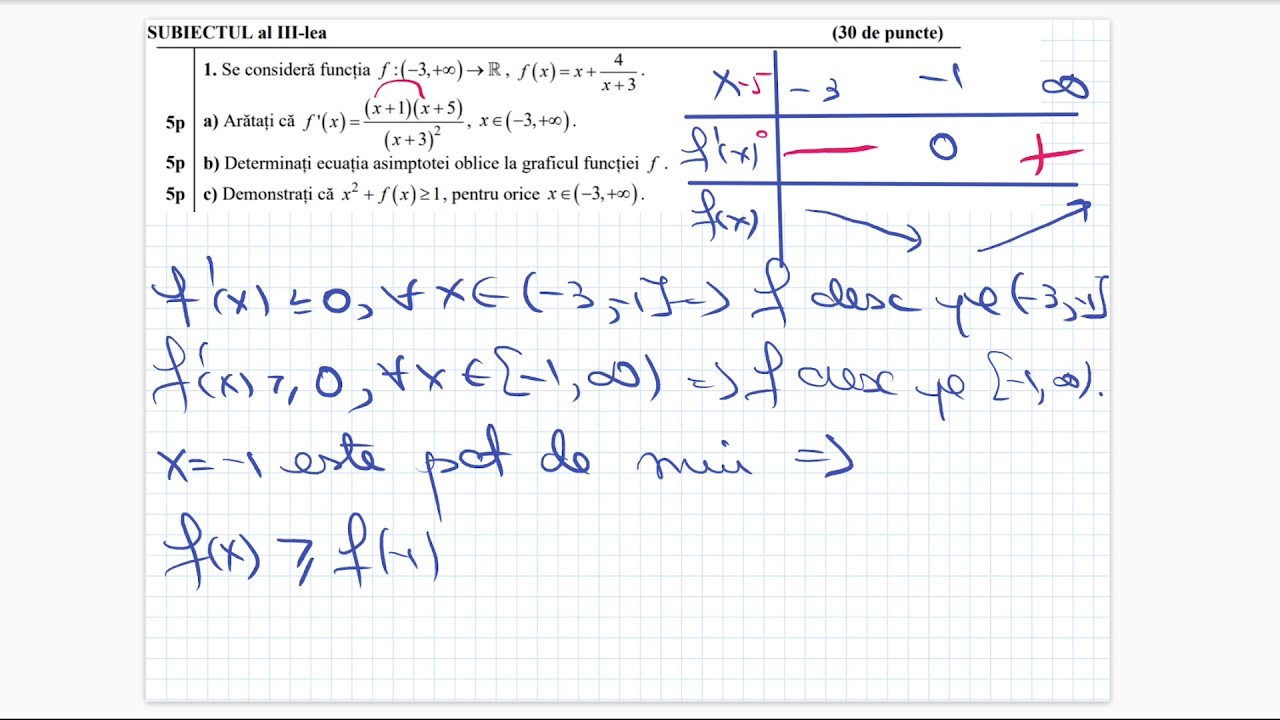 SUBIECTUL al III-lea (30 de puncte)
1. Se consideră funcția f : (−3,+∞) → ℝ, f(x) = x + 4/(x+3).
5p a) Arătați că f'(x) = (x+1)(x+5)/(x+3)², x∈(−3,+∞).
5p b) Determinați ecuația asimptotei oblice la graficul funcției f.
5p c) Demonstrați că x² + f(x) ≥ 1, pentru orice x∈(−3,+∞).
x -5 -3 -1 ∞
f'(x) 0 — 0 +
f(x) ↘ ↗
f'(x) ≤ 0, ∀x∈(-3,-1] => f desc pe (-3,-1]
f'(x) ≥ 0, ∀x∈[-1,∞) => f desc pe [-1,∞).
x=-1 este pct de min =>
f(x) ≥ f(-1)